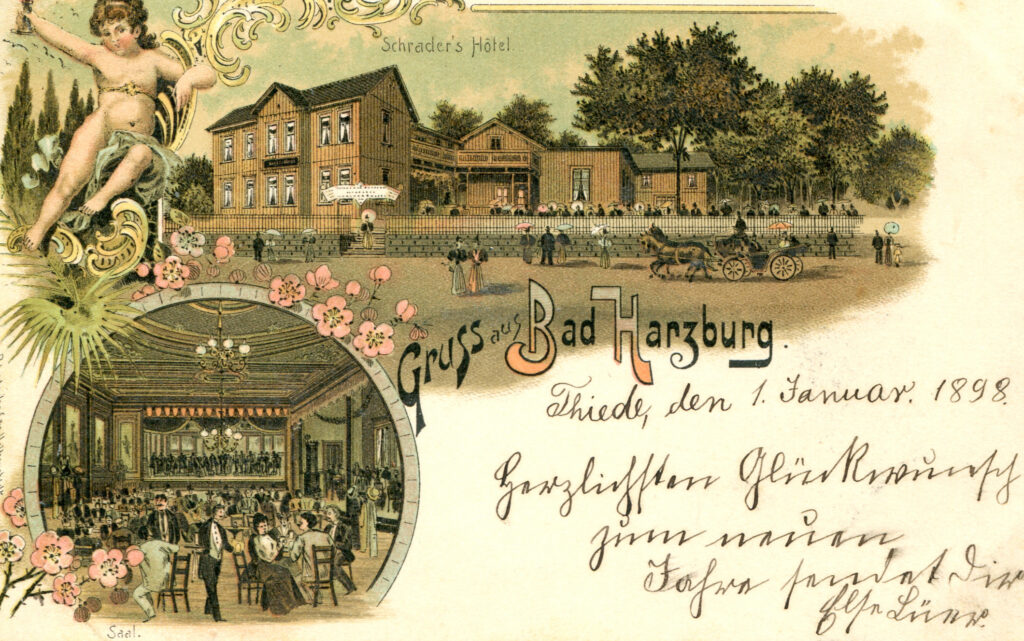 Schrader's Hôtel.
Gruss aus Bad Harzburg.
Thiede, den 1. Januar. 1898.
Herzlichsten Glückwunsch
zum neuen
Jahre sendet Dir
Else Lüer.
Saal.